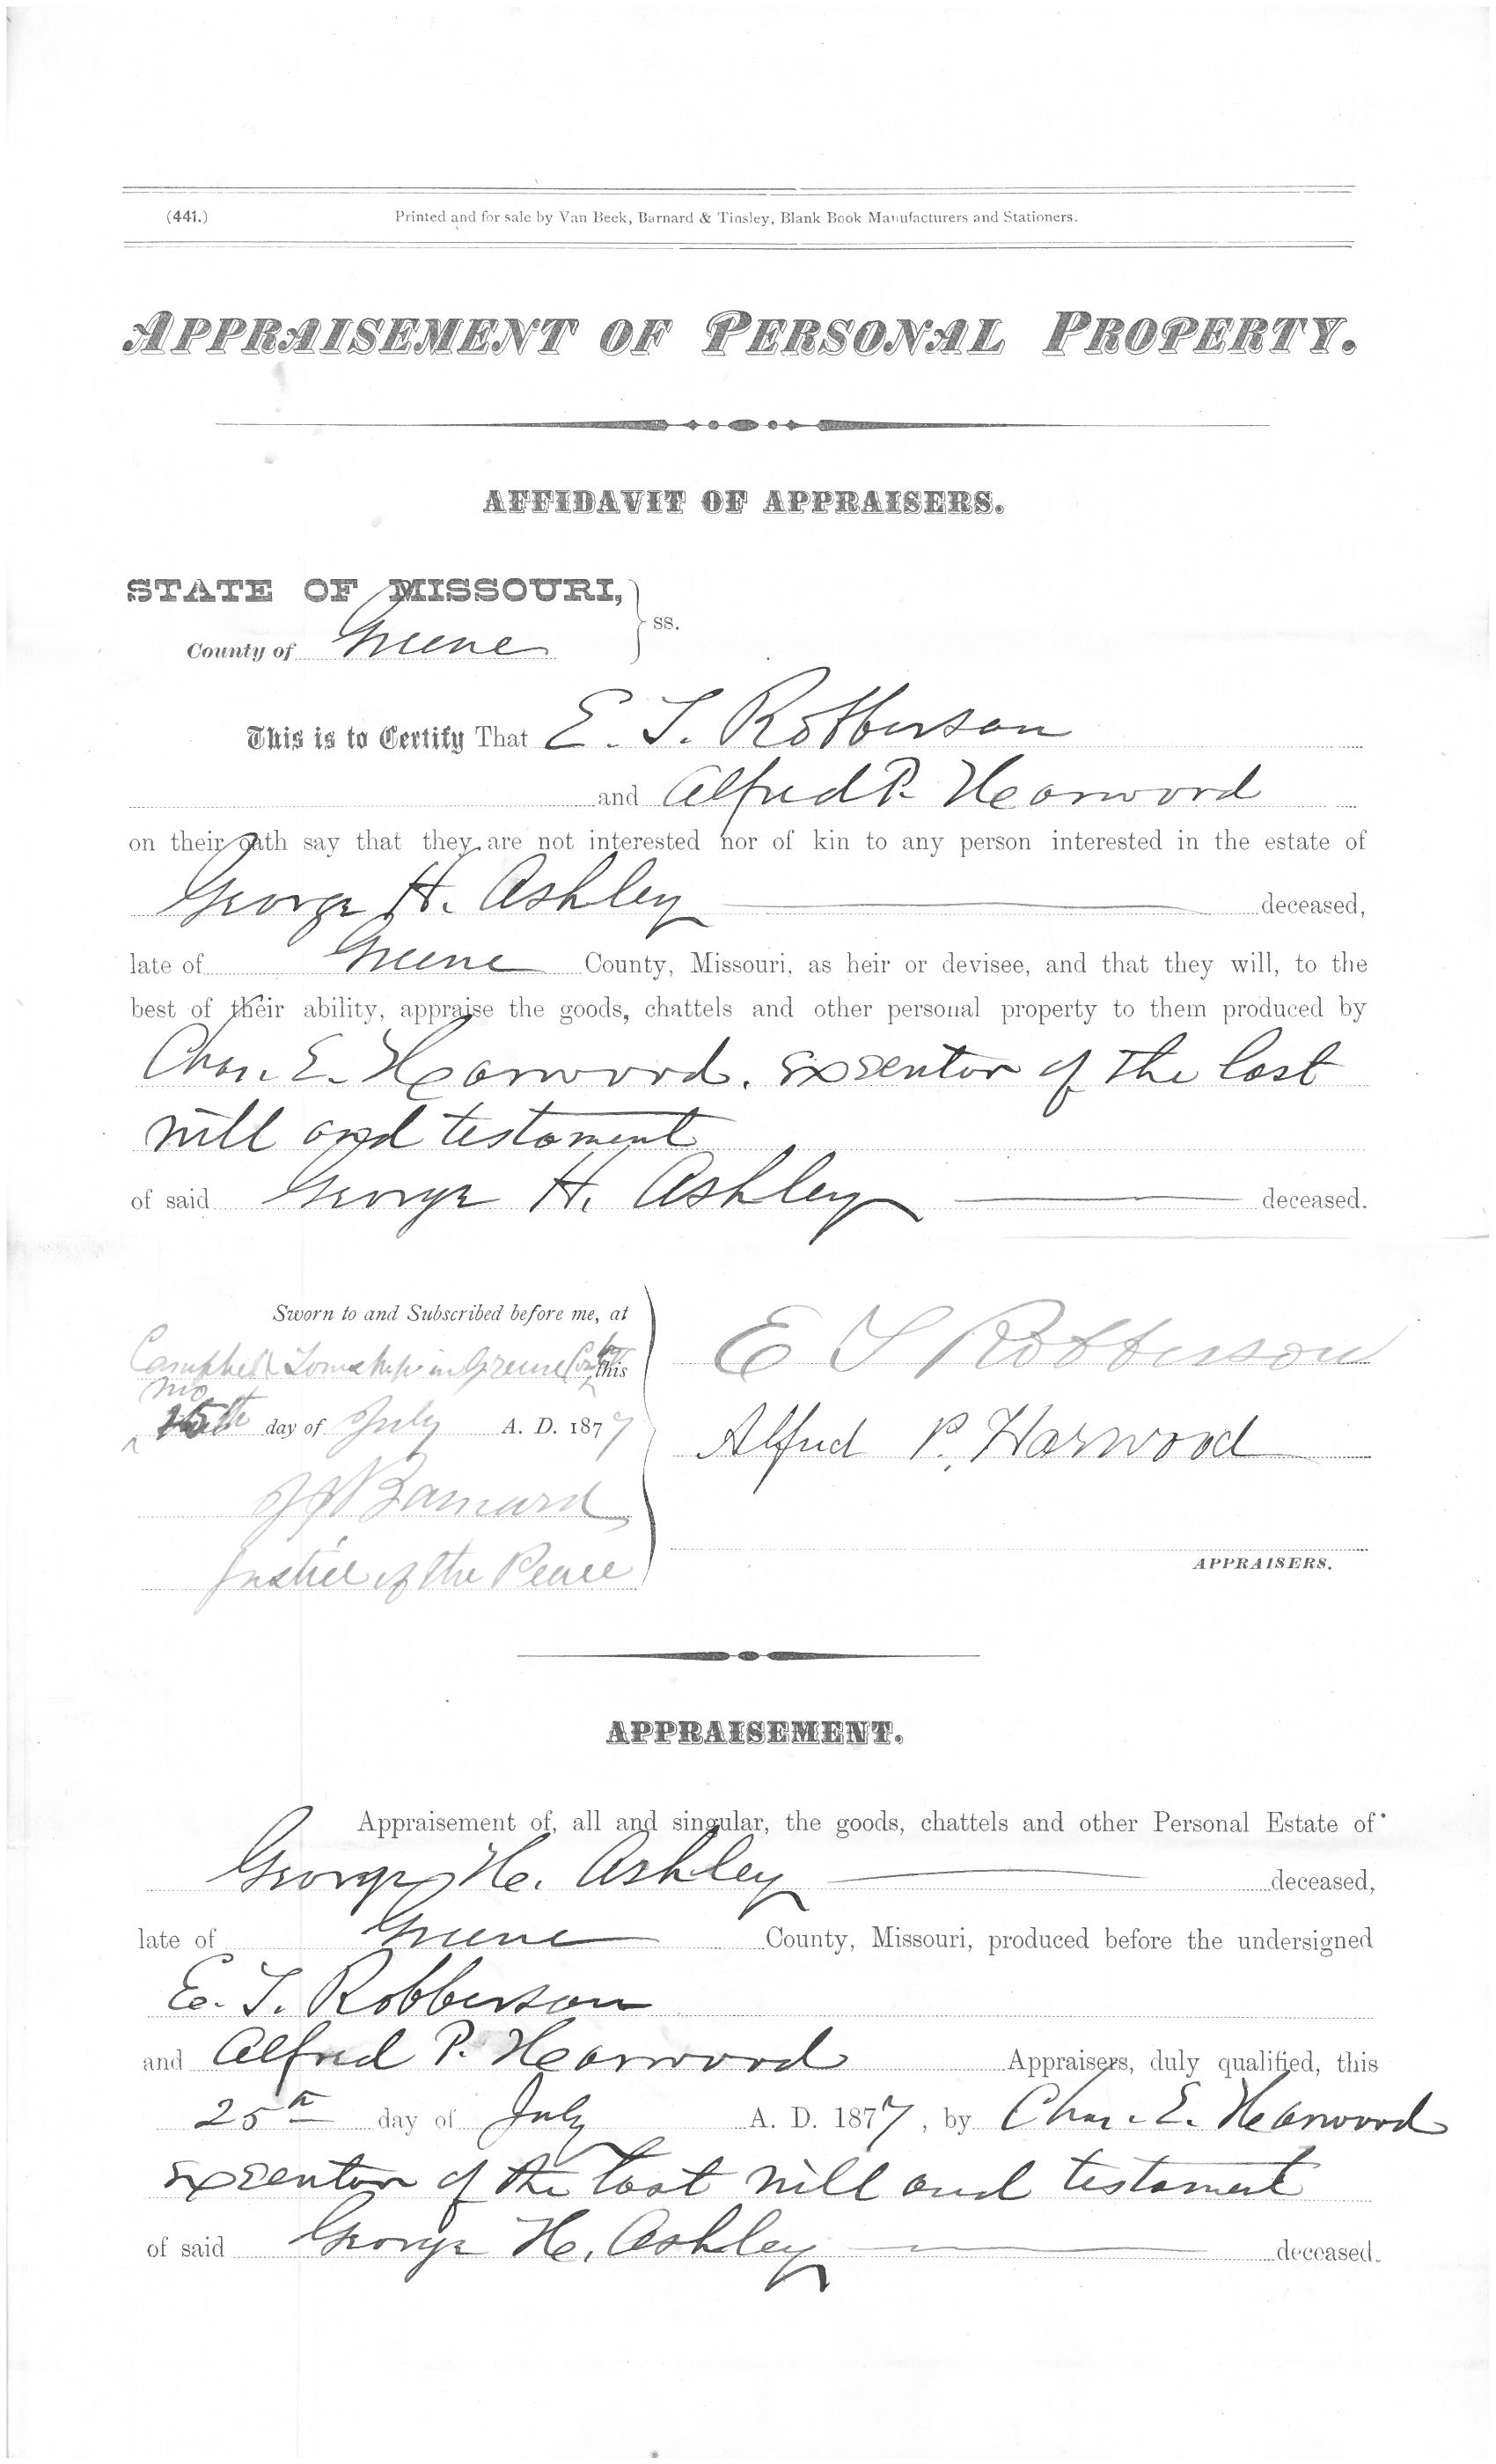 (441.) Printed and for sale by Van Beek, Barnard & Tinsley, Blank Book Manufacturers and Stationers.
APPRAISEMENT OF PERSONAL PROPERTY.
AFFIDAVIT OF APPRAISERS.
STATE OF MISSOURI,
County of Greene ss.
This is to Certify That E. T. Robberson
and Alfred P. Harwood
on their oath say that they are not interested nor of kin to any person interested in the estate of
George H. Ashley deceased,
late of Greene County, Missouri, as heir or devisee, and that they will, to the
best of their ability, appraise the goods, chattels and other personal property to them produced by
Chas. E. Harwood. executor of the last
will and testament
of said George H. Ashley deceased.
Sworn to and Subscribed before me, at
Campbell Township in Greene this
Mo
25th day of July A. D. 1877
Barnard
Justice of the Peace
E T Robberson
Alfred P. Harwood
APPRAISERS.
APPRAISEMENT.
Appraisement of, all and singular, the goods, chattels and other Personal Estate of
George H. Ashley deceased,
late of Greene County, Missouri, produced before the undersigned
E. T. Robberson
and Alfred P. Harwood Appraisers, duly qualified, this
25th day of July A. D. 1877, by Chas. E. Harwood
executor of the last will and testament
of said George H. Ashley deceased.